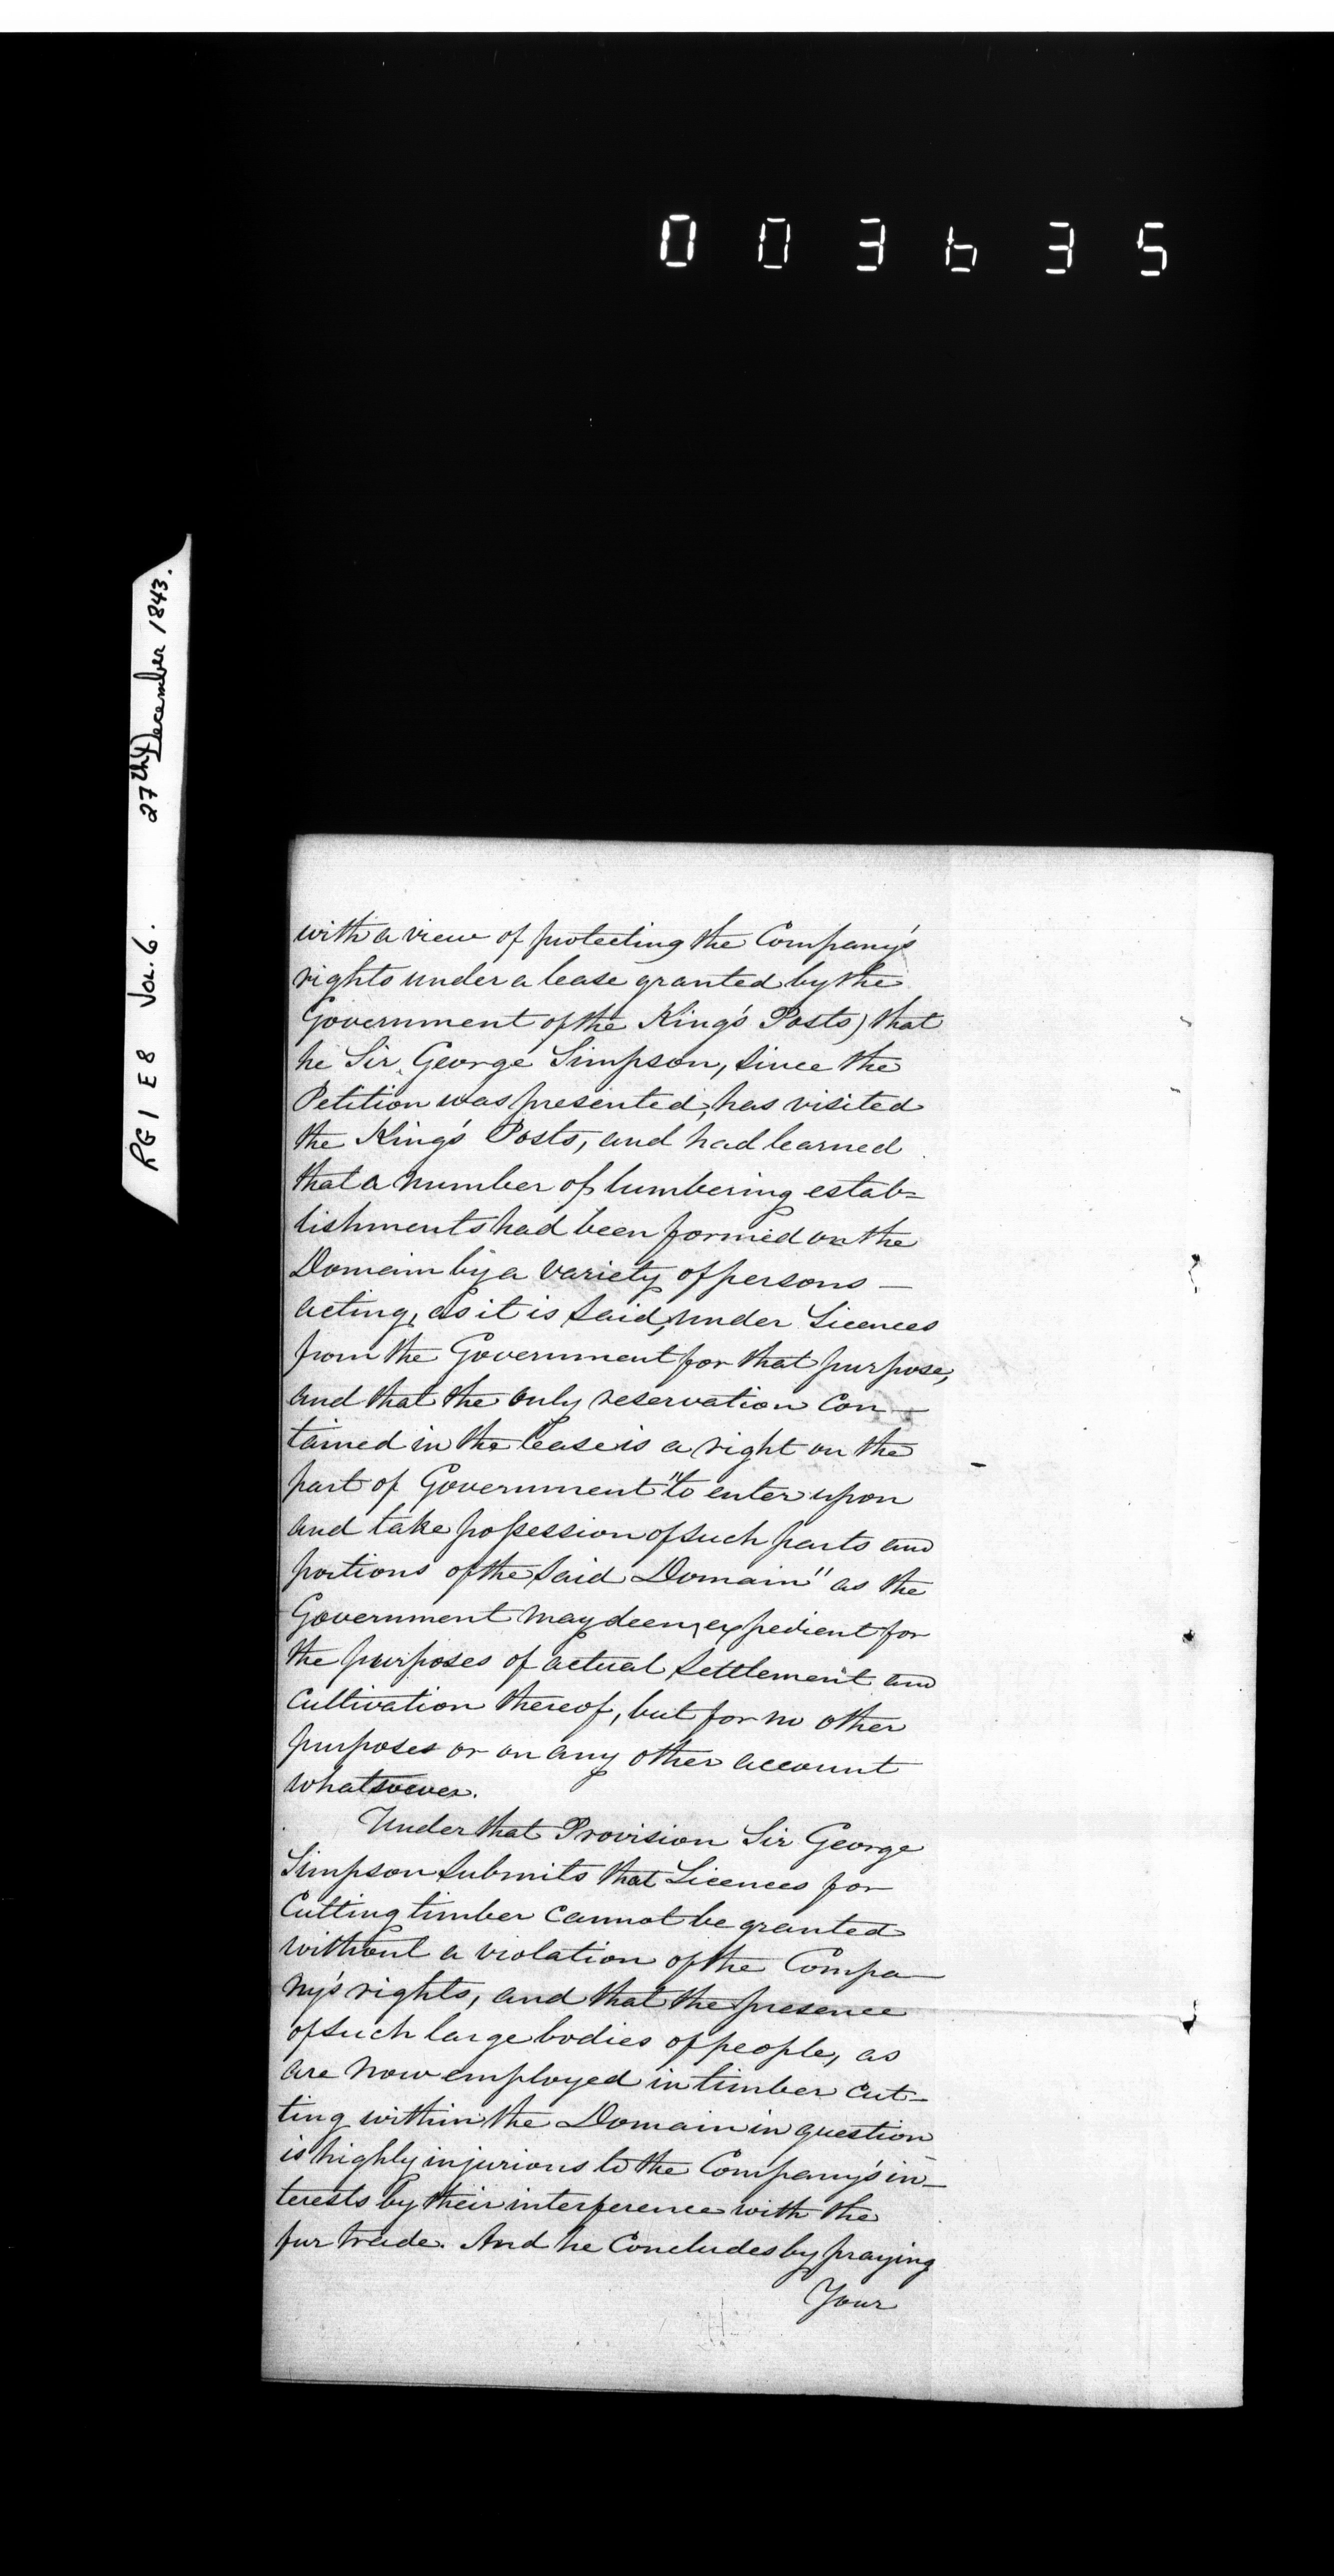 003635
RG 1 E8 Vol. 6. 27th December 1843.
with a view of protecting the Company's
rights under a lease granted by the
Government of the King's Posts) that
he Sir George Simpson, since the
Petition was presented, has visited
the King's Posts, and had learned
that a number of lumbering estab=
lishments had been formed on the
Domain by a variety of persons —
acting, as it is said, under Licences
from the Government for that purpose,
and that the only reservation con —
tained in the lease is a right on the
part of Government "to enter upon
and take possession of such parts and
portions of the said Domain" as the
Government may deem expedient for
the purposes of actual settlement and
cultivation thereof, but for no other
purposes or on any other account
whatsoever.
Under that Provision Sir George
Simpson submits that Licences for
Cutting timber cannot be granted
without a violation of the Compa—
ny's rights, and that the presence
of such large bodies of people, as
are now employed in timber cut—
ting within the Domain in question
is highly injurious to the Company's in—
terests by their interference with the
fur trade. And he Concludes by praying
Your